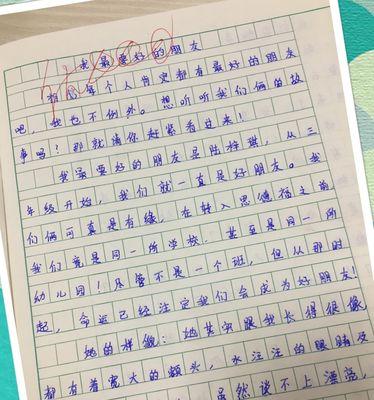 我最要好的朋友
每个人肯定都有最好的朋友
吧，我也不例外。想听听我们俩的故
事吗？那就请你赶紧看过来！
我最要好的朋友是陆梓琪，从三
年级开始，我们就一直是好朋友。我
们俩可真是有缘，在转入思德福之前
我们竟是同一所学校，甚至是同一所
幼儿园！尽管不是一个班，但从那时
起，命运已经注定我们会成为好朋友！
她的样貌：她其实跟我长得很像
都有着宽大的额头，水汪汪的眼睛及
虽然谈不上漂亮，